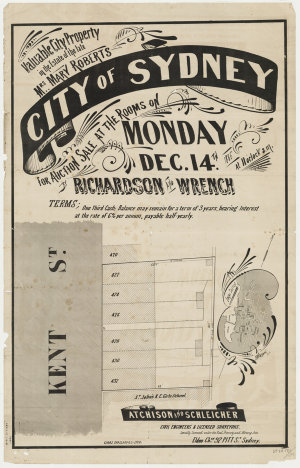 Valuable City Property
in the Estate of the late
Mrs MARY ROBERTS
CITY OF SYDNEY
FOR AUCTION SALE AT THE ROOMS ON
MONDAY
DEC. 14TH
At 11 o'clock a.m.
BY RICHARDSON AND WRENCH
TERMS: One Third Cash, Balance may remain for a term of 3 years, bearing interest
at the rate of 6% per annum, payable half-yearly.
KENT ST.
St John's R.C. Girls School
ATCHISON AND SCHLEICHER
CIVIL ENGINEERS & LICENSED SURVEYORS.
PITT St. Sydney.